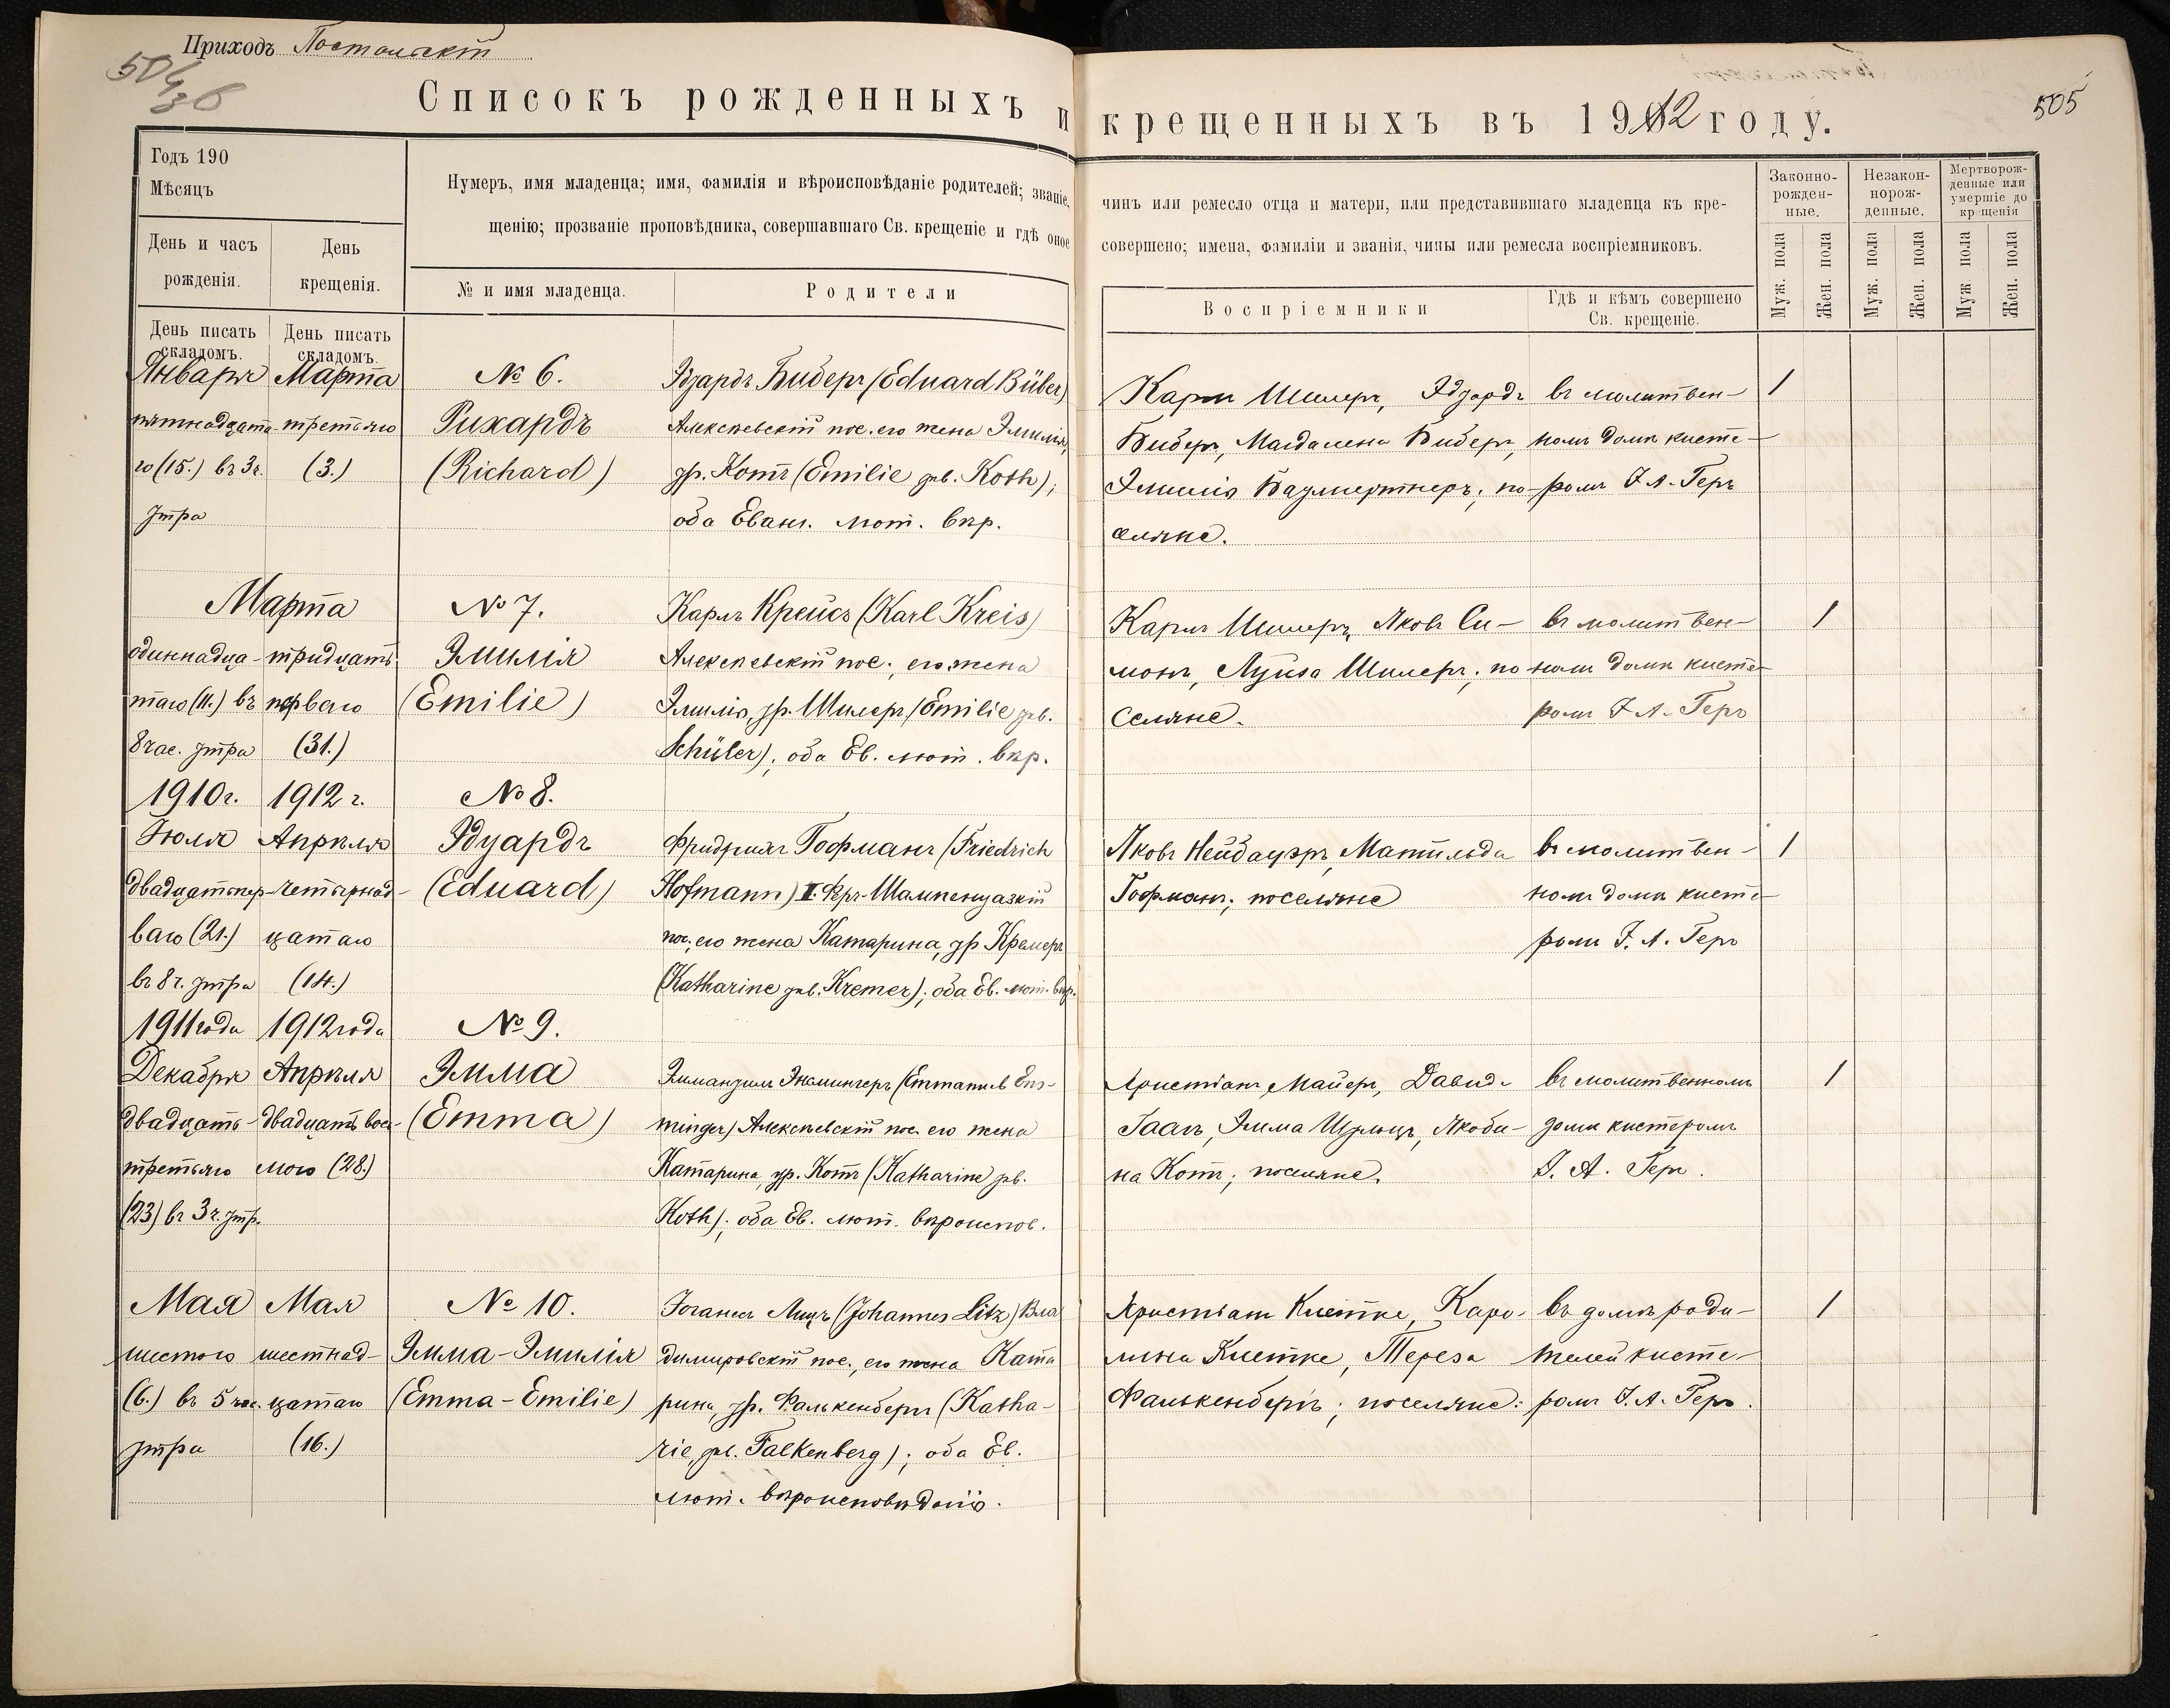 Приходъ Постальскій
504
36
505
Списокъ рожденныхъ и крещенныхъ въ 1912 году.
Годъ 190
Мѣсяцъ
День и часъ
рожденія.
День
крещенія.
День писать
складомъ.
День писать
складомъ.
Нумеръ, имя младенца; имя, фамилія и вѣроисповѣданіе родителей; званіе, чинъ или ремесло отца и матери, или представившаго младенца къ кре-
щенію; прозваніе проповѣдника, совершавшаго Св. крещеніе и гдѣ оное совершено; имена, фамиліи и званія, чины или ремесла воспріемниковъ.
№ и имя младенца.
Родители
Воспріемники
Гдѣ и кѣмъ совершено
Св. крещеніе.
Законно-
рожден-
ные.
Незакон-
норож-
денные.
Мертворож-
денные или
умершіе до
крещенія
Муж. пола
Жен. пола
Муж. пола
Жен. пола
Муж пола
Жен. пола
Января
пятнадцата-
го (15.) въ 3 ч.
утра
Марта
третьяго
(3.)
№ 6.
Рихардъ
(Richard)
Эдуардъ Биберъ (Eduard Büber)
Алексѣевскій пос. его жена Эмилія,
ур. Котъ (Emilie урв. Koth);
оба Еванг. лют. вѣр.
Карлъ Шилеръ, Эдуардъ
Биберъ, Магдалена Биберъ,
Эмилія Баумгертнеръ; по-
селяне.
въ молитвен-
номъ домѣ кисте-
ромъ І. А. Геръ
1
Марта
одиннадца-
таго (11.) въ
8 час. утра
тридцать
перваго
(31.)
№ 7.
Эмилія
(Emilie)
Карлъ Крейсъ (Karl Kreis)
Алексѣевскій пос., его жена
Эмилія, ур. Шилеръ (Emilie урв.
Schüler); оба Ев. лют. вѣр.
Карлъ Шилеръ, Яковъ Си-
монъ, Луиза Шилеръ; по
селяне.
въ молитвен-
номъ домѣ кисте-
ромъ І. А. Геръ
1
1910 г.
Іюля
двадцатьпер-
ваго (21.)
въ 8 ч. утра
1912 г.
Апрѣля
четырнад-
цатаго
(14.)
№ 8.
Эдуардъ
(Eduard)
Фридрихъ Гофманъ (Friedrich
Hofmann) II. Фер-Шампенуазкій
пос., его жена Катарина, ур. Кремеръ
(Katharine урв. Kremer); оба Ев. лют. вѣр.
Яковъ Нейбауэръ, Матильда
Гофманъ; поселяне
въ молитвен-
номъ домѣ кисте-
ромъ І. А. Геръ
1
1911 года
Декабря
двадцать-
третьяго
(23) въ 3 ч. утр.
1912 года
Апрѣля
двадцать вось-
мого (28.)
№ 9.
Эмма
(Emma)
Эммануилъ Энсмингеръ (Emmanuel Ens-
minger) Алексѣевскій пос. его жена
Катарина, ур. Котъ (Katharine урв.
Koth); оба Ев. лют. вѣроиспов.
Христіанъ Майеръ, Давидъ
Гаагъ, Эмма Шульцъ, Якоби-
на Котъ; поселяне.
въ молитвенномъ
домѣ кистеромъ
І. А. Геръ.
1
Мая
шестого
(6.) въ 5 час.
утра
Мая
шестнад-
цатаго
(16.)
№ 10.
Эмма-Эмилія
(Emma-Emilie)
Іоганнсъ Лицъ (Johannes Litz) Вла
димировскій пос., его жена Ката
рина, ур. Фалькенбергъ (Katha-
rie, урв. Falkenberg); оба Ев.
лют. вѣроисповѣданія.
Христіанъ Кнетке, Каро-
лина Кнетке, Тереза
Фалькенбергъ; поселяне.
въ домѣ роди-
телей кисте-
ромъ І. А. Геръ.
1